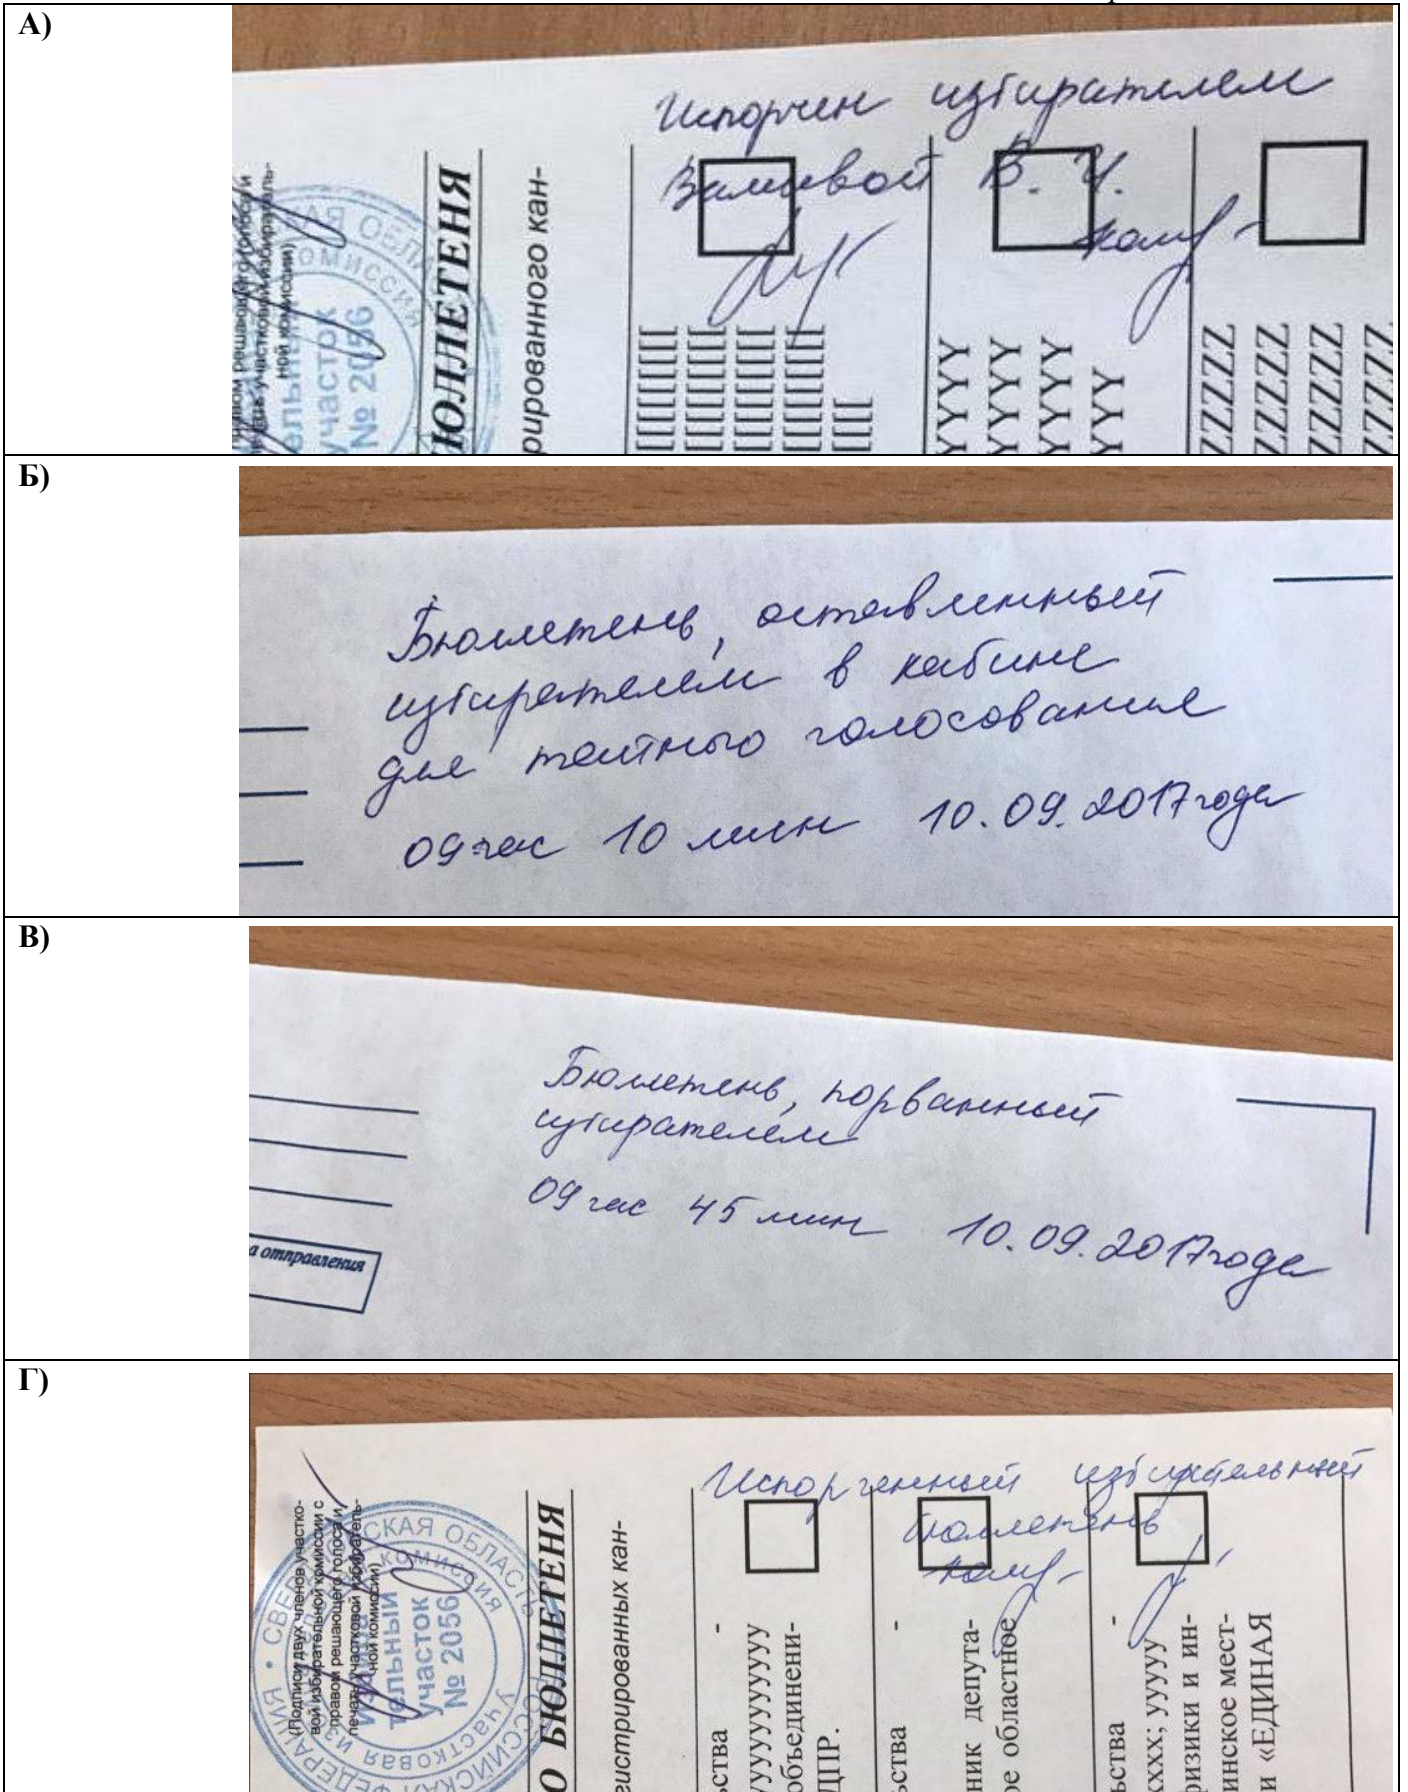 А)
Испорчен избирателем
В. И.
(Подписи двух членов участко-
вой избирательной комиссии с
правом решающего голоса и
печать участковой избиратель-
ной комиссии)
участок
№ 2056
БЮЛЛЕТЕНЯ
рированного кан-
[[[[[[[[
[[[[[[[[
[[[[[[[[
[[[[[[[[
[[[[
YYYY
YYYY
YYYY
YYY
ZZZZZ
ZZZZZ
ZZZZZ
ZZZZZ
Б)
Бюллетень, оставленный
избирателем в кабине
для тайного голосования
09 час 10 мин 10.09.2017 года
В)
Бюллетень, порванный
избирателем
09 час 45 мин 10.09.2017 года
а отправления
Г)
Испорченный избирательный
бюллетень
(Подписи двух членов участко-
вой избирательной комиссии с
правом решающего голоса и
печать участковой избиратель-
ной комиссии)
тельный
участок
№ 2056
О БЮЛЛЕТЕНЯ
егистрированных кан-
ьства -
ууууууууууу
объединени-
ДПР.
ьства -
ник депута-
ое областное
ьства -
хххх; ууууу
физики и ин-
инское мест-
и «ЕДИНАЯ